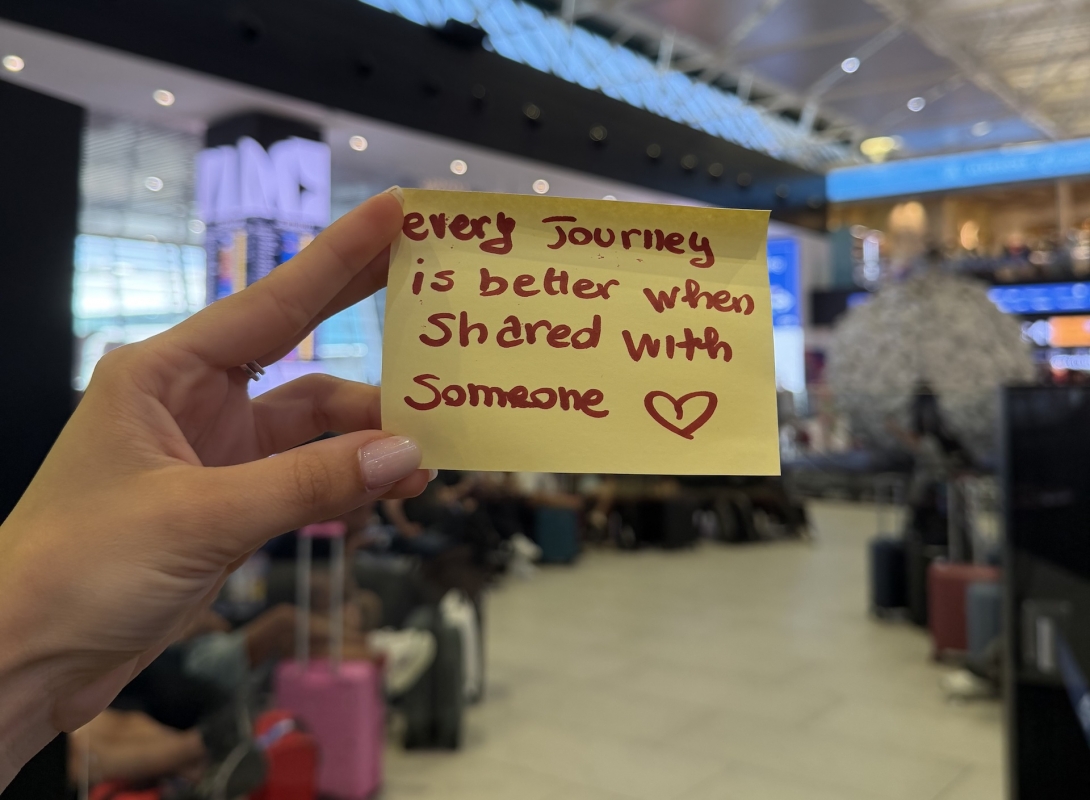 every Journey
is better when
Shared with
Someone ♡